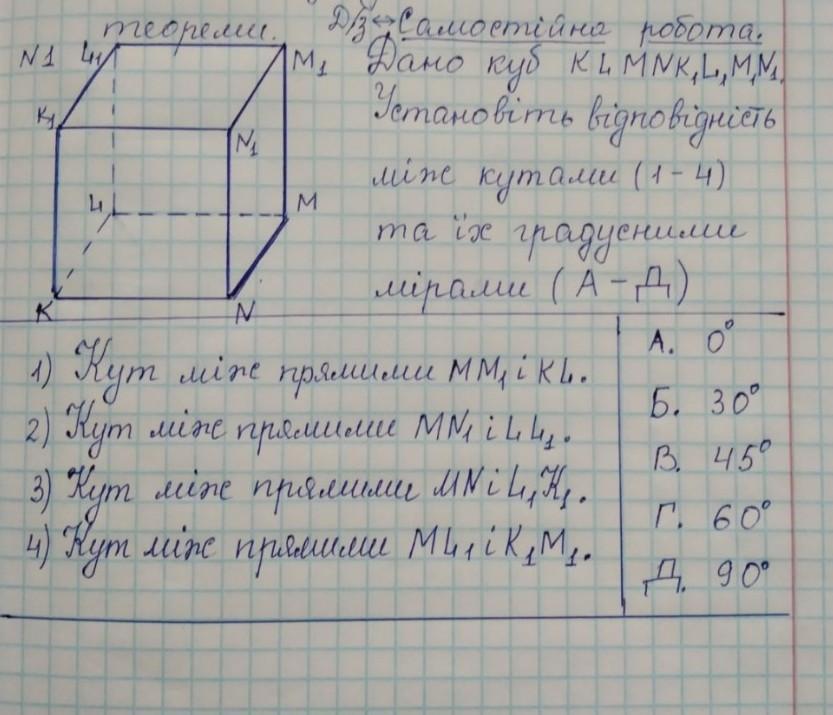 теореми. Д/з ↔ Самостійна робота.
N1 L₁ M₁ Дано куб KLMNK₁L₁M₁N₁.
K₁ N₁ Установіть відповідність
між кутами (1-4)
L M та їх градусними
мірами (А-Д)
K N
1) Кут між прямими MM₁ і KL.
2) Кут між прямими MN₁ і LL₁.
3) Кут між прямими MN і L₁K₁.
4) Кут між прямими ML₁ і K₁M₁.
А. 0°
Б. 30°
В. 45°
Г. 60°
Д. 90°